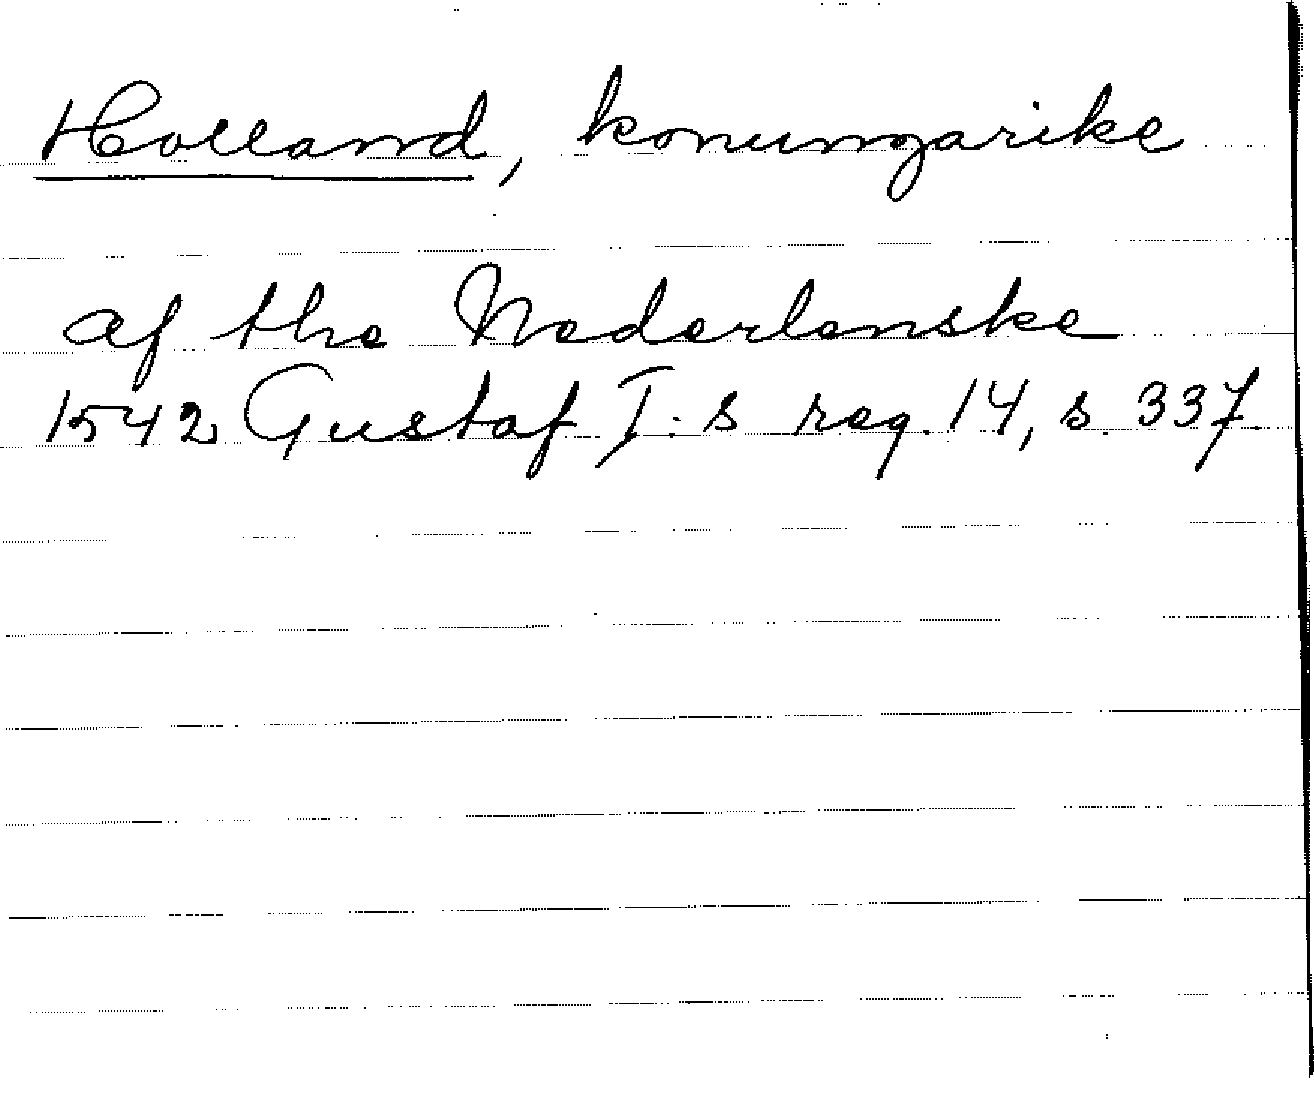 Holland, konungarike
af the Nederlenske
1542 Gustaf I:s reg. 14, s. 337.